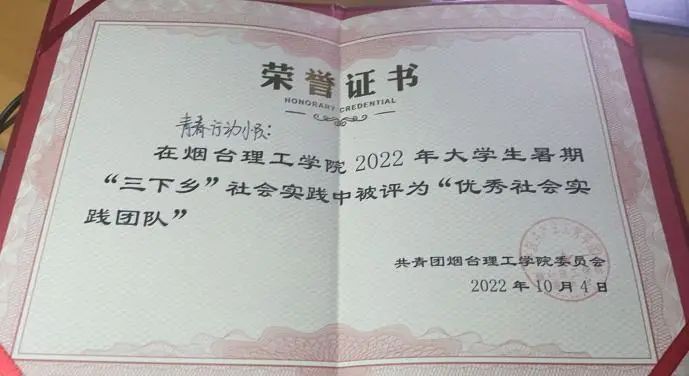 荣誉证书
HONORARY CREDENTIAL
青春行动小队：
在烟台理工学院2022年大学生暑期
“三下乡”社会实践中被评为“优秀社会实
践团队”
共青团烟台理工学院委员会
2022年10月4日